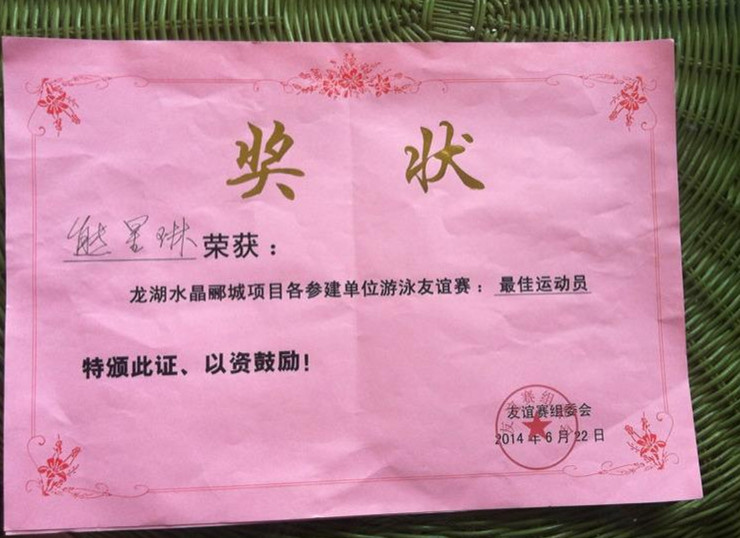 奖状
熊星琳荣获：
龙湖水晶郦城项目各参建单位游泳友谊赛：最佳运动员
特颁此证、以资鼓励！
友谊赛组委会
2014年6月22日